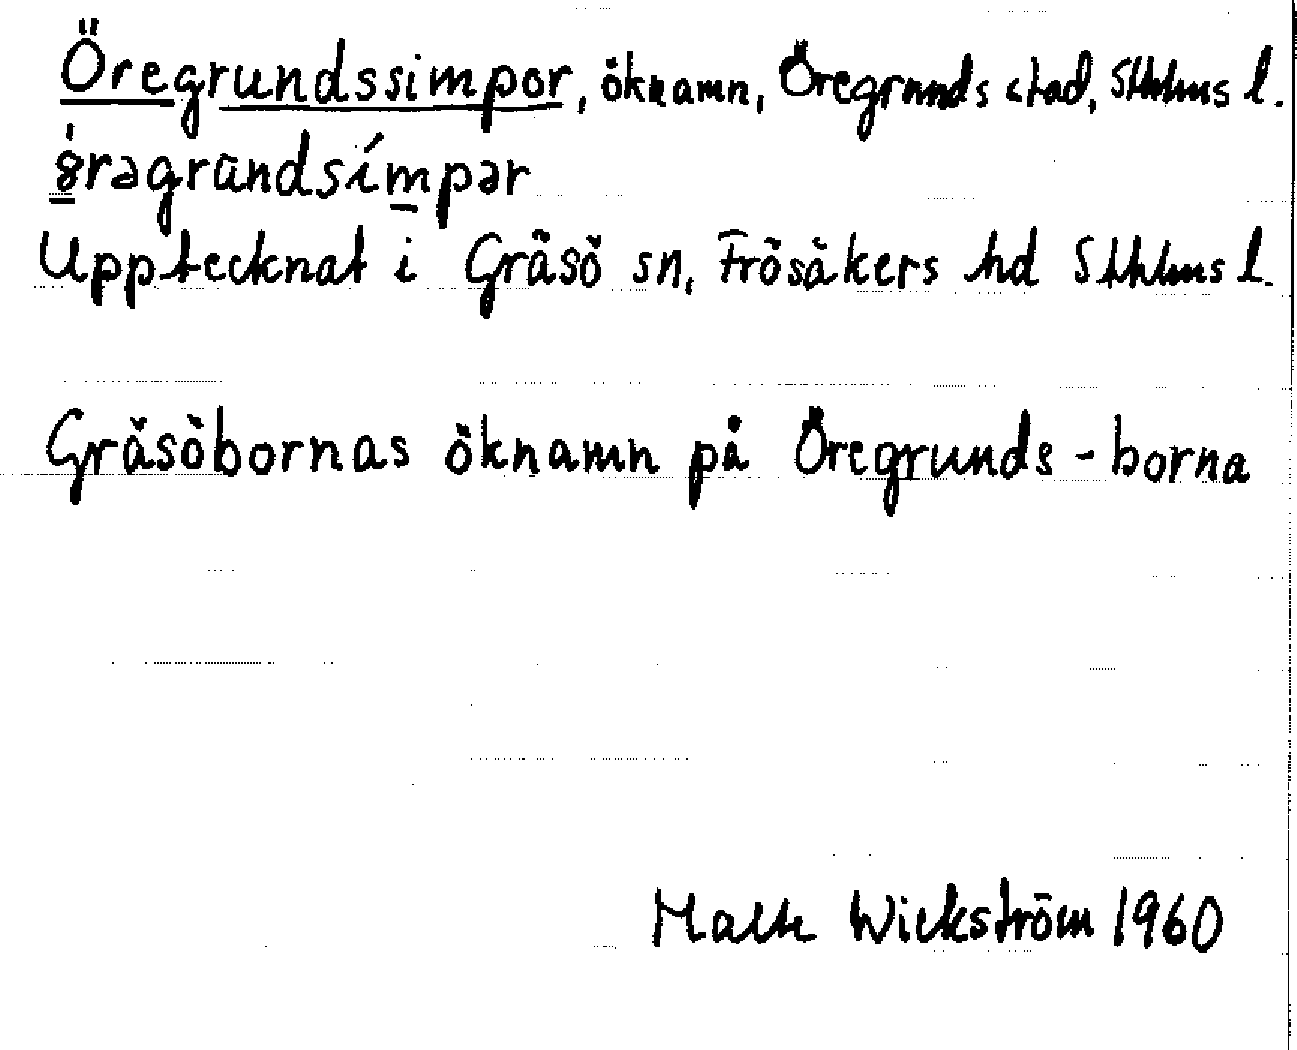 Öregrundssimpor, öknamn, Öregrunds stad, Sthlms l.
Upptecknat i Gräsö sn, Frösåkers hd Sthlms l.
Gräsöbornas öknamn på Öregrunds-borna
Wickström 1960